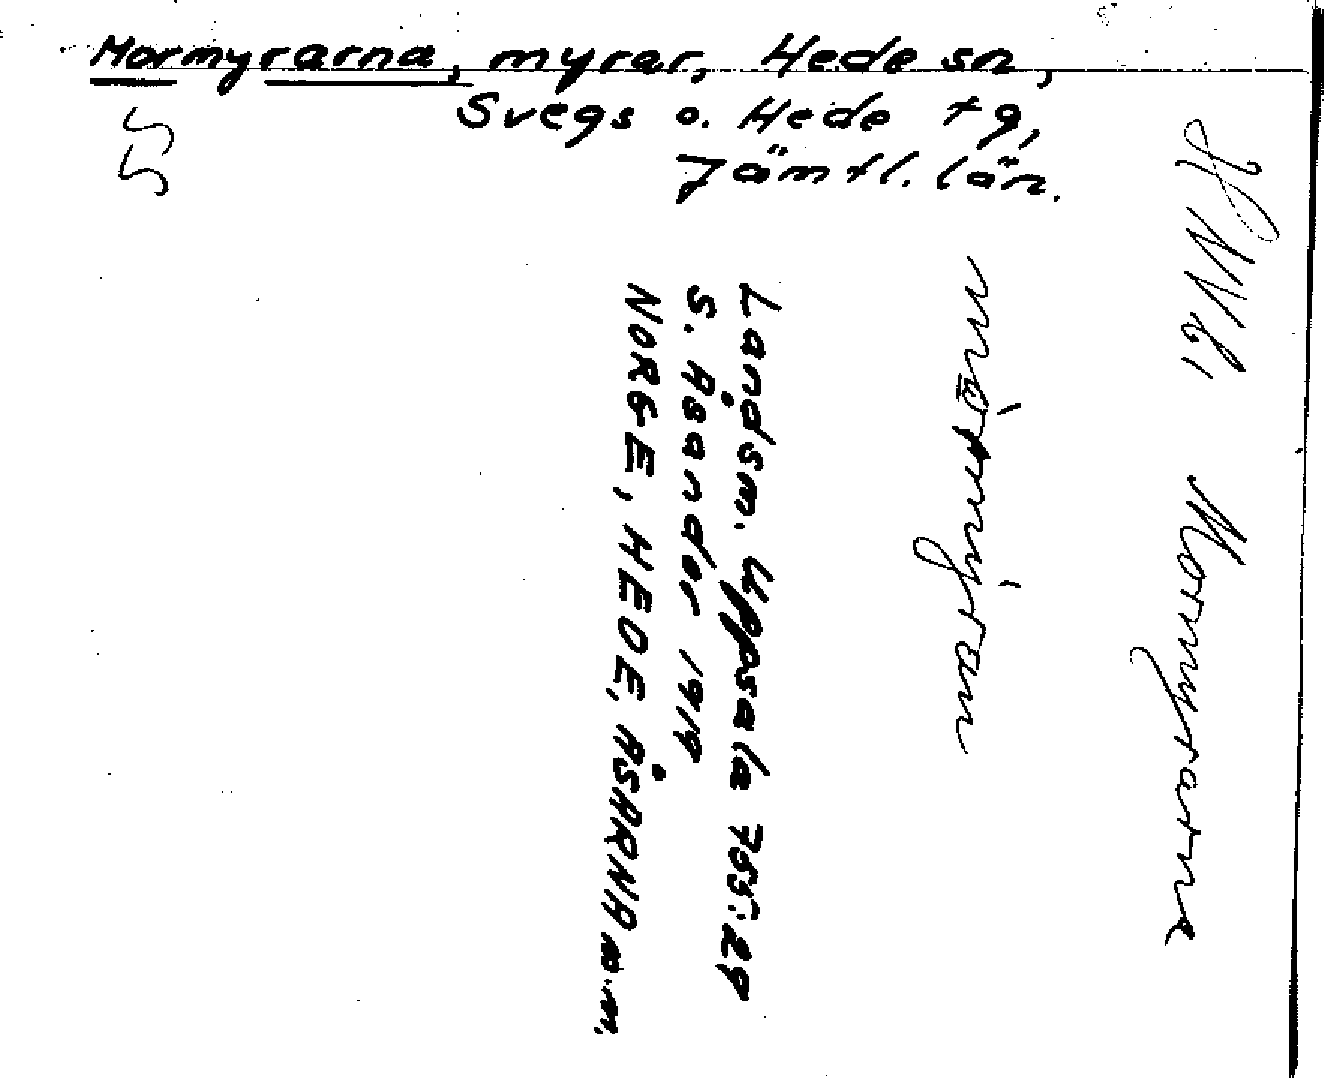 Mormyrarna, myrar, Hede sn,
Svegs o. Hede tg,
Jämtl. län.
55
Mormyrarna
Landsm. Uppsala 755:29
S. Åsander 1919
NORGE, HEDE, ÅSARNA m.m.